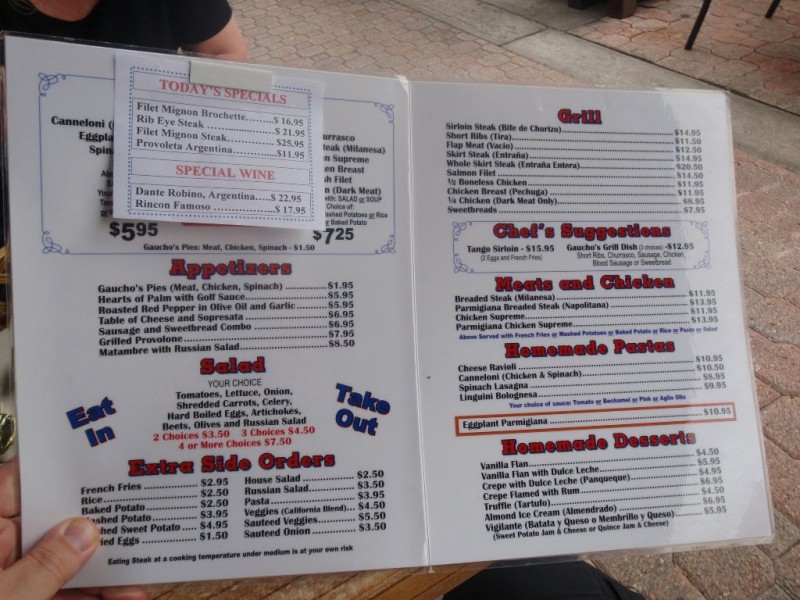 TODAY'S SPECIALS
Filet Mignon Brochette........$ 16.95
Rib Eye Steak ....................$ 21.95
Filet Mignon Steak...........$25.95
Provoleta Argentina.........$11.95
SPECIAL WINE
Dante Robino, Argentina.....$ 22.95
Rincon Famoso ..................$ 17.95
Canneloni (
Eggpla
Spin
$595
urrasco
eak (Milanesa)
en Supreme
en Breast
sh Filet
n (Dark Meat)
with: SALAD or SOUP
Choice of:
ashed Potatoes or Rice
or Baked Potato
$725
Gaucho's Pies: Meat, Chicken, Spinach - $1.50
Appetizers
Gaucho's Pies (Meat, Chicken, Spinach) ..................$1.95
Hearts of Palm with Golf Sauce..............................$5.95
Roasted Red Pepper in Olive Oil and Garlic ..............$5.95
Table of Cheese and Sopresata ..............................$6.95
Sausage and Sweetbread Combo ...........................$6.95
Grilled Provolone ..............................................$7.95
Matambre with Russian Salad................................$8.50
Salad
YOUR CHOICE
Tomatoes, Lettuce, Onion,
Shredded Carrots, Celery,
Hard Boiled Eggs, Artichokes,
Beets, Olives and Russian Salad
2 Choices $3.50 3 Choices $4.50
4 or More Choices $7.50
Eat
In
Take
Out
Extra Side Orders
French Fries ................$2.95
Rice............................$2.50
Baked Potato ..............$2.50
ashed Potato .............$3.95
ashed Sweet Potato ....$4.95
ied Eggs ...................$1.50
House Salad ................$2.50
Russian Salad..............$3.50
Pasta ........................$3.95
Veggies (California Blend)....$4.50
Sauteed Veggies...........$5.50
Sauteed Onion .............$3.50
Eating Steak at a cooking temperature under medium is at your own risk
Grill
Sirloin Steak (Bife de Chorizo)..............................$14.95
Short Ribs (Tira)..............................................$11.50
Flap Meat (Vacio).............................................$12.50
Skirt Steak (Entraña)........................................$14.95
Whole Skirt Steak (Entraña Entera).......................$20.50
Salmon Filet ..................................................$14.50
½ Boneless Chicken..........................................$11.95
Chicken Breast (Pechuga)...................................$11.95
¼ Chicken (Dark Meat Only).................................$8.95
Sweetbreads....................................................$7.95
Chef's Suggestions
Tango Sirloin - $15.95
(2 Eggs and French Fries)
Gaucho's Grill Dish (3 choices) -$12.95
Short Ribs, Churrasco, Sausage, Chicken,
Blood Sausage or Sweetbread
Meats and Chicken
Breaded Steak (Milanesa)...................................$11.95
Parmigiana Breaded Steak (Napolitana)..................$13.95
Chicken Supreme.............................................$11.95
Parmigiana Chicken Supreme...............................$13.95
Above Served with French Fries or Mashed Potatoes or Baked Potato or Rice or Pasta or Salad
Homemade Pastas
Cheese Ravioli ................................................$10.95
Canneloni (Chicken & Spinach).............................$10.50
Spinach Lasagna..............................................$8.95
Linguini Bolognesa...........................................$9.95
Your choice of sauce: Tomato or Bechamel or Pink or Aglio Olio
Eggplant Parmigiana .........................................$10.95
Homemade Desserts
Vanilla Flan.....................................................$4.50
Vanilla Flan with Dulce Leche...............................$5.95
Crepe with Dulce Leche (Panqueque).......................$4.95
Crepe Flamed with Rum......................................$6.95
Truffle (Tartufo)................................................$4.50
Almond Ice Cream (Almendrado) ...........................$6.95
Vigilante (Batata y Queso o Membrillo y Queso) .........$5.95
(Sweet Potato Jam & Cheese or Quince Jam & Cheese)